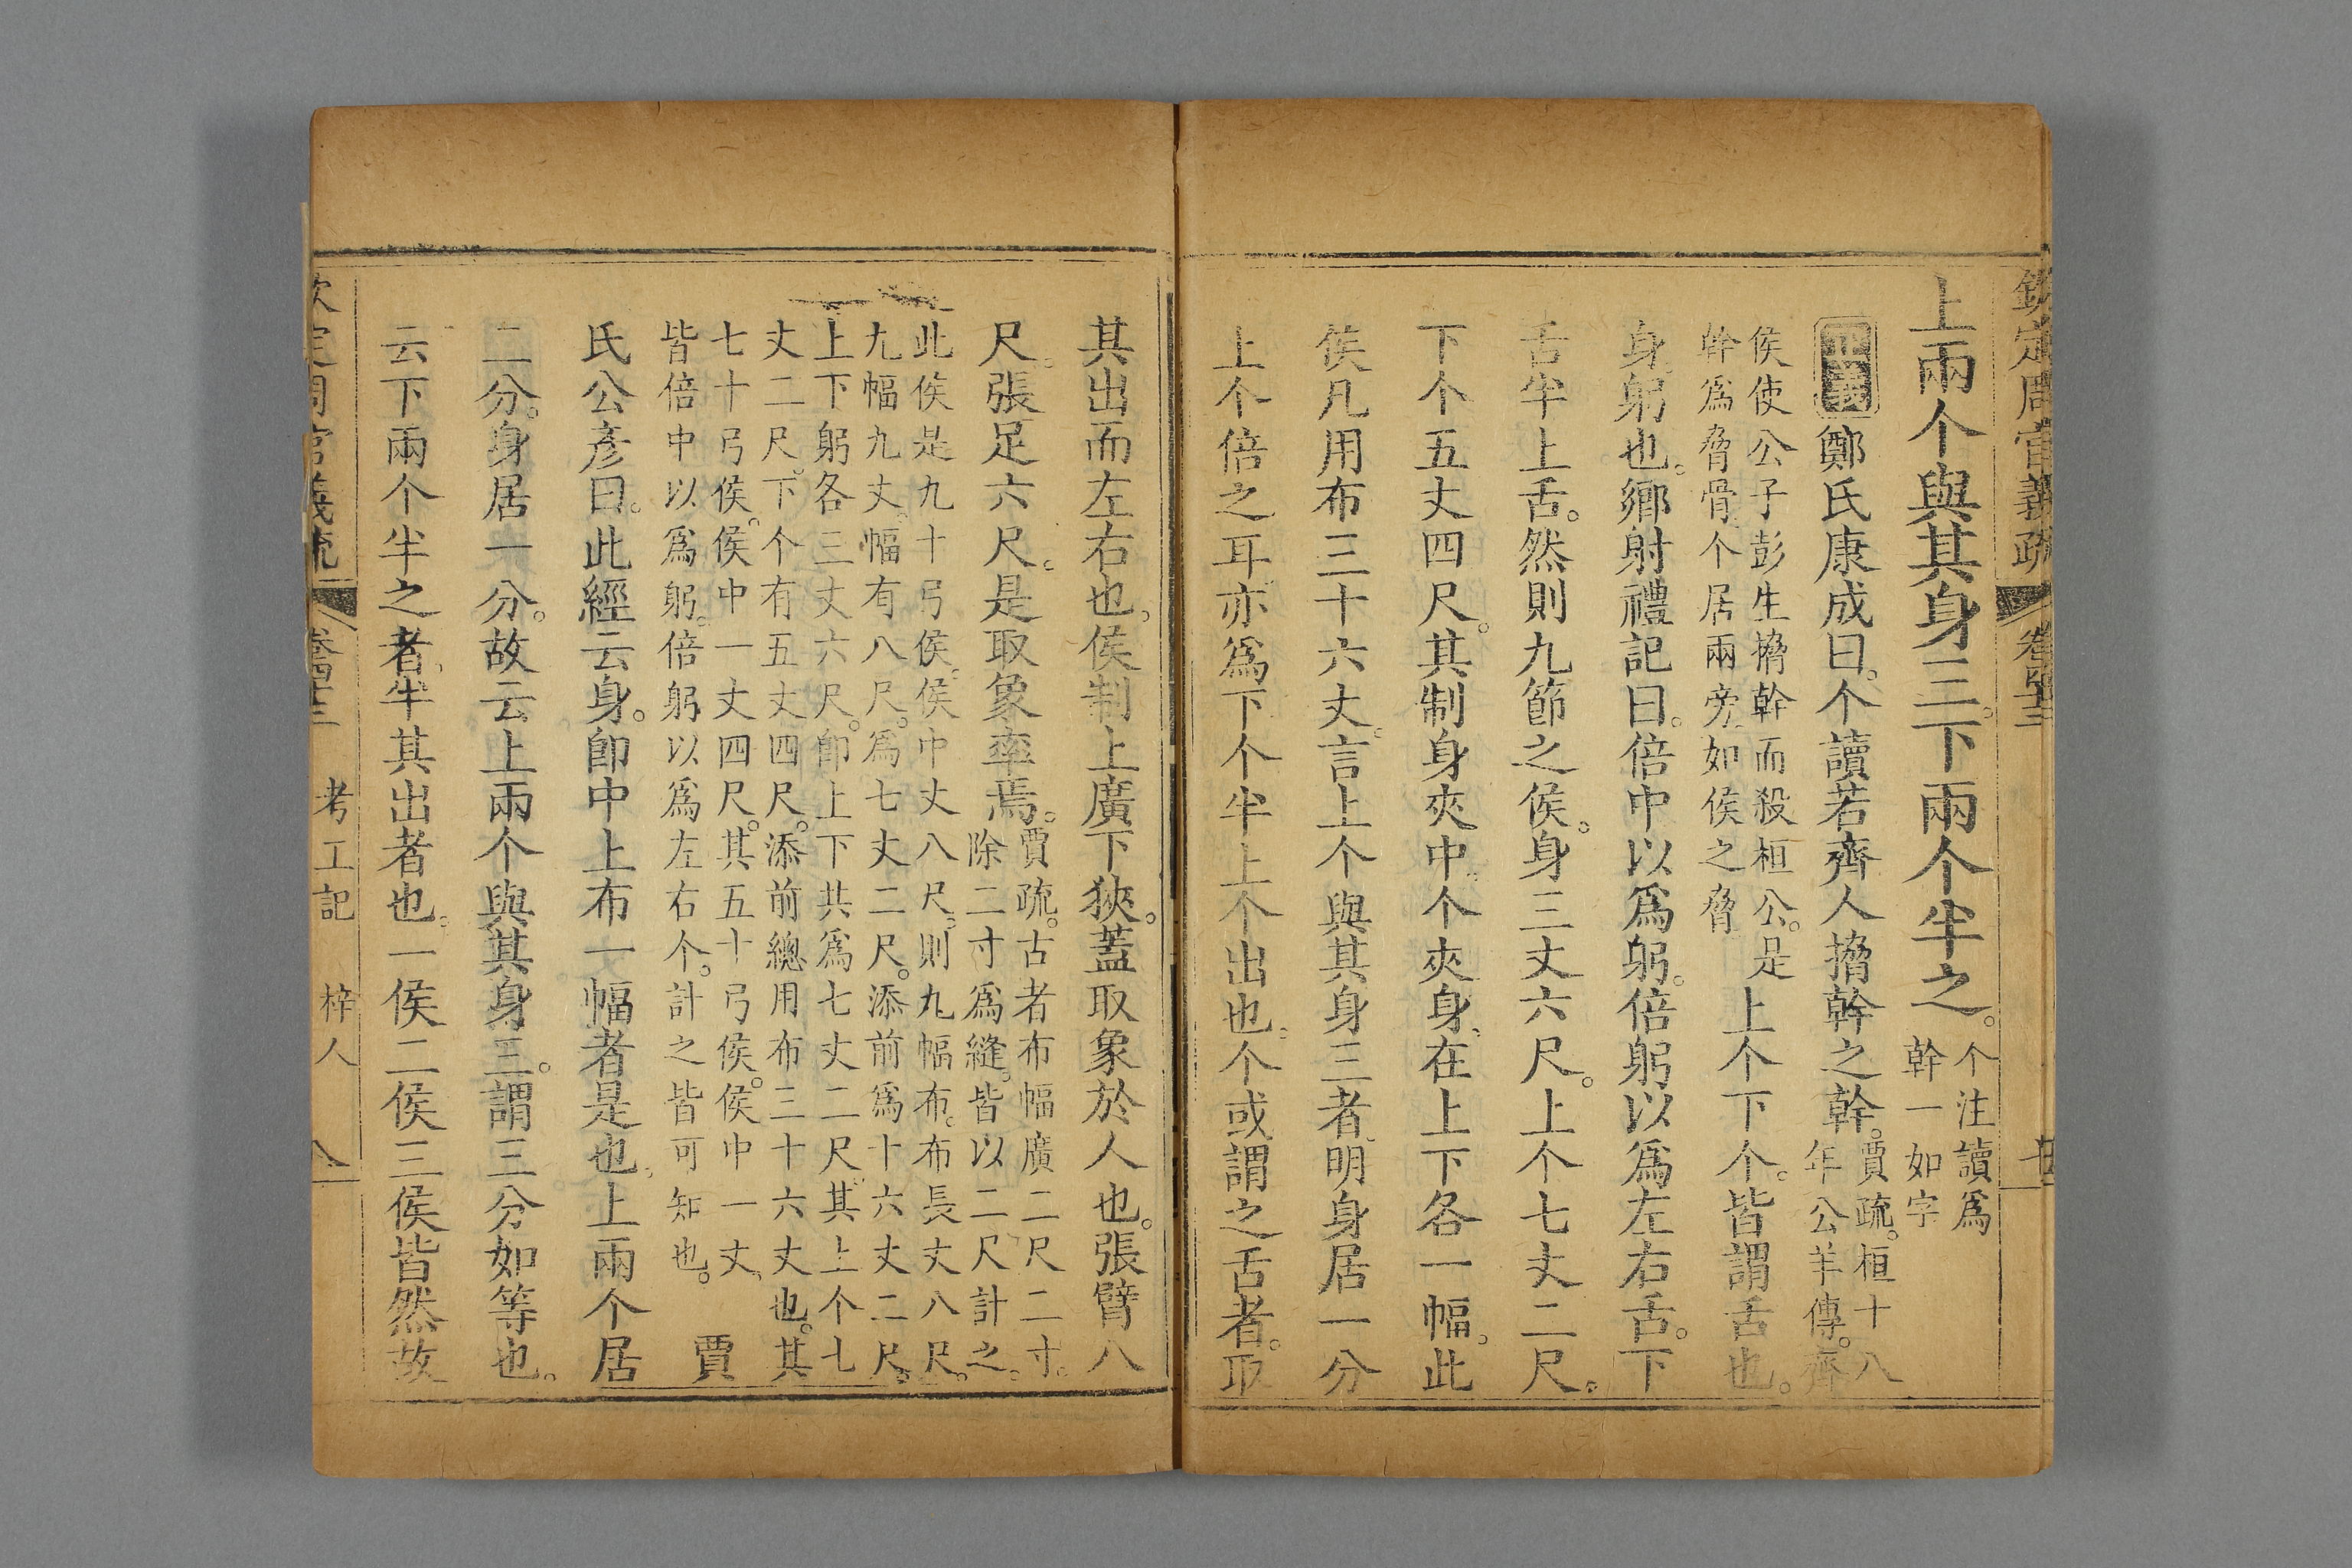 欽定周官義疏 卷四十三
上兩个與其身三。下兩个半之。个注讀爲
幹一如字
正義 鄭氏康成曰。个讀若齊人搚幹之幹。賈疏。桓十八
年公羊傳。齊
侯使公子彭生搚幹而殺桓公。是
幹爲脅骨。个居兩旁。如侯之脅
上个下个。皆謂舌也。
身。躬也。鄉射禮記曰。倍中以爲躬。倍躬以爲左右舌。下
舌半上舌。然則九節之侯。身三丈六尺。上个七丈二尺。
下个五丈四尺。其制身夾中。个夾身。在上下各一幅。此
侯凡用布三十六丈。言上个與其身三者。明身居一分
上个倍之耳。亦爲下个半上个出也。个或謂之舌者。取
其出而左右也。侯制上廣下狹。蓋取象於人也。張臂八
尺。張足六尺。是取象率焉。賈疏。古者布幅廣二尺二寸。
除二寸爲縫。皆以二尺計之。
此侯是九十弓侯。侯中丈八尺。則九幅布。布長丈八尺。
九幅九丈。幅有八尺。爲七丈二尺。添前爲十六丈二尺。
上下躬各三丈六尺。卽上下共爲七丈二尺。其上个七
丈二尺。下个有五丈四尺。添前總用布三十六丈也。其
七十弓侯。侯中一丈四尺。其五十弓侯。侯中一丈、
皆倍中以爲躬。倍躬以爲左右个。計之皆可知也。
賈
氏公彥曰。此經云身。卽中上布一幅者是也。上兩个居
二分。身居一分。故云上兩个與其身三。謂三分如等也。
云下兩个半之者。半其出者也。一侯二侯三侯皆然故
欽定周官義疏 卷四十三 考工記 梓人